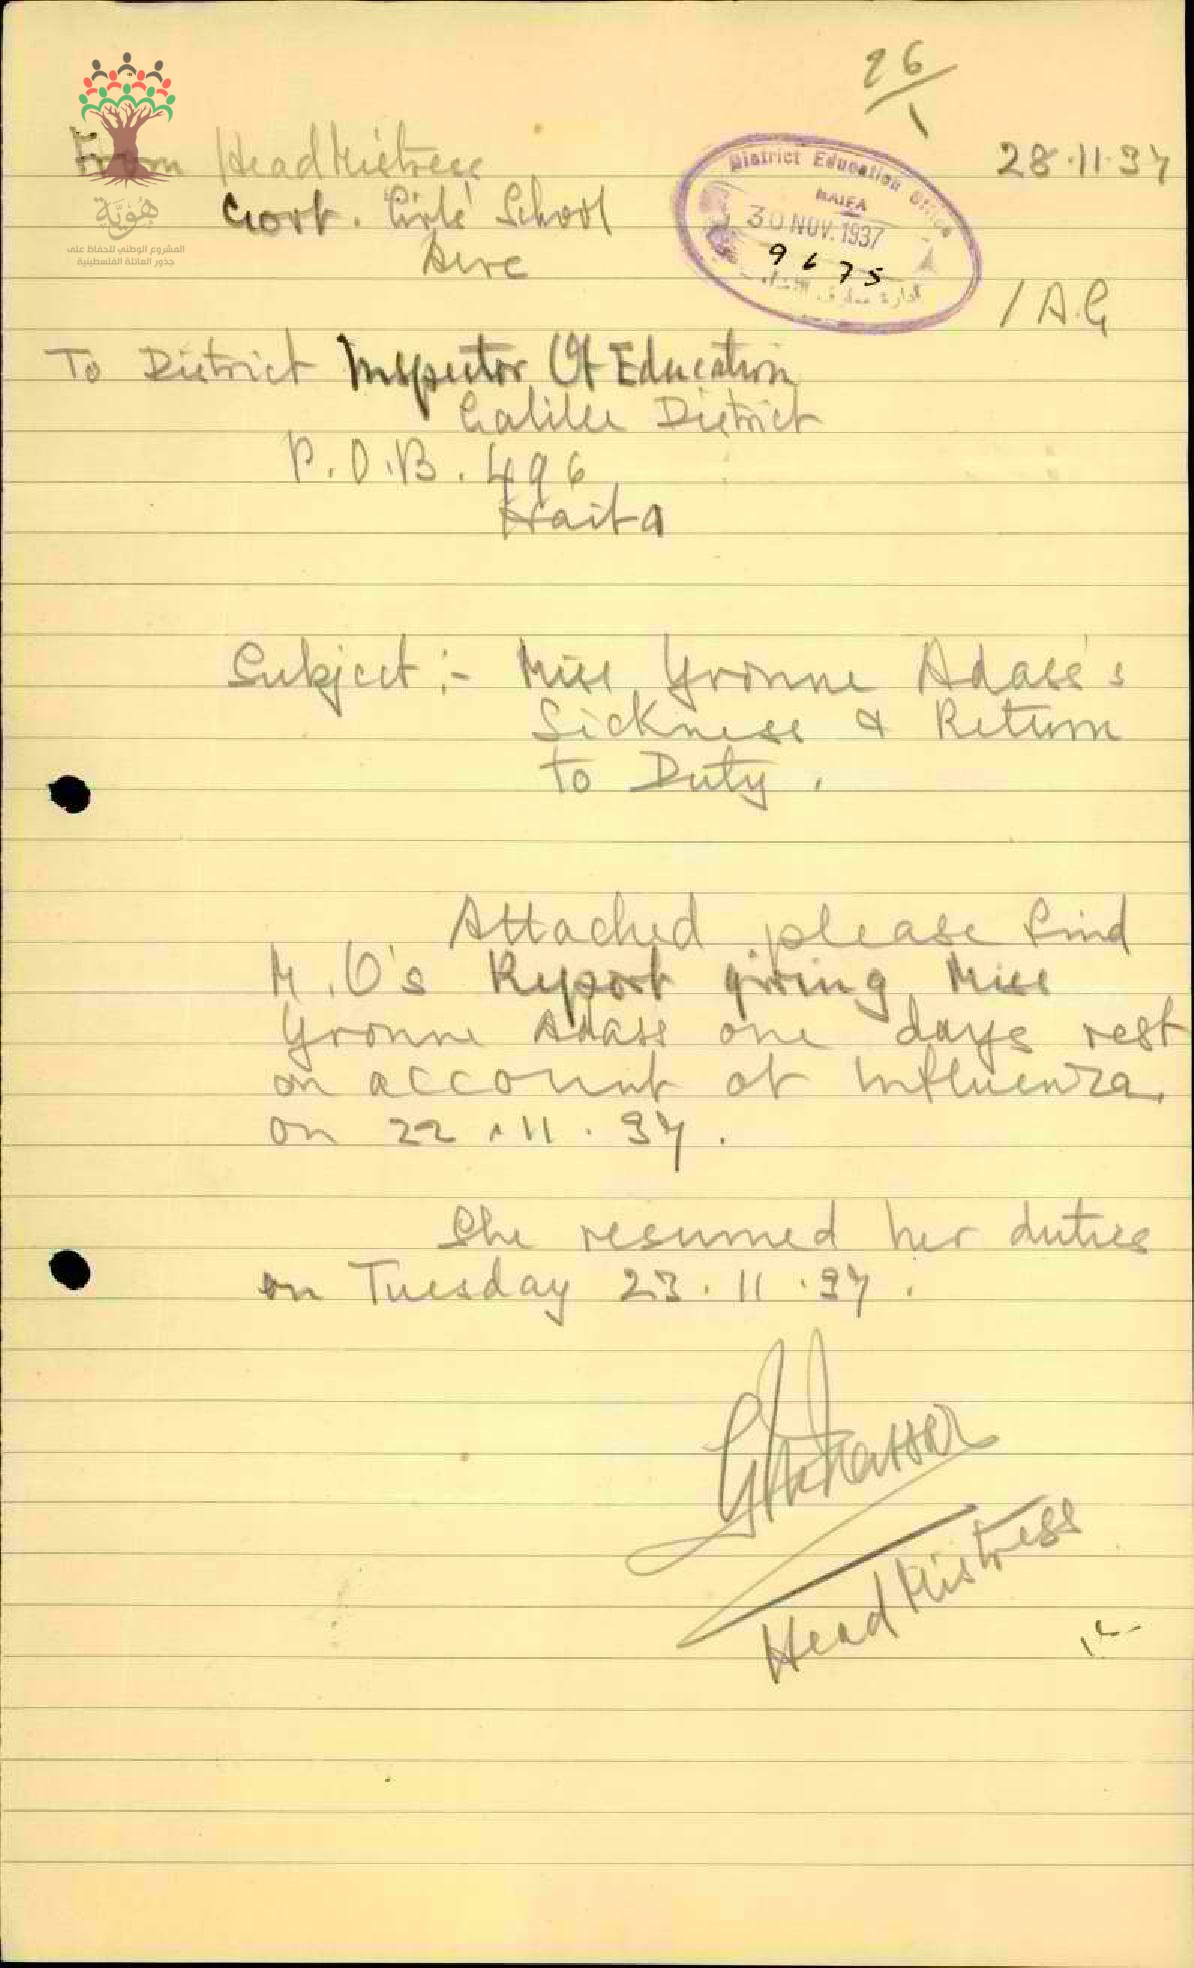 26/1
From HeadMistress
28.11.37
Govt. Girls' School
Acre
District Education Office
HAIFA
30 NOV. 1937
9675
إدارة معارف
هُوِيَّة
المشروع الوطني للحفاظ على
جذور العائلة الفلسطينية
/ A.G
To District Inspector Of Education
Galilee District
P.O.B. 496
Haifa
Subject :- Miss Yvonne Adass's
Sickness & Return
to Duty.
Attached please find
M.O's Report giving Miss
Yvonne Adass one days rest
on account of Influenza
on 22.11.37.
She resumed her duties
on Tuesday 23.11.37.
HeadMistress